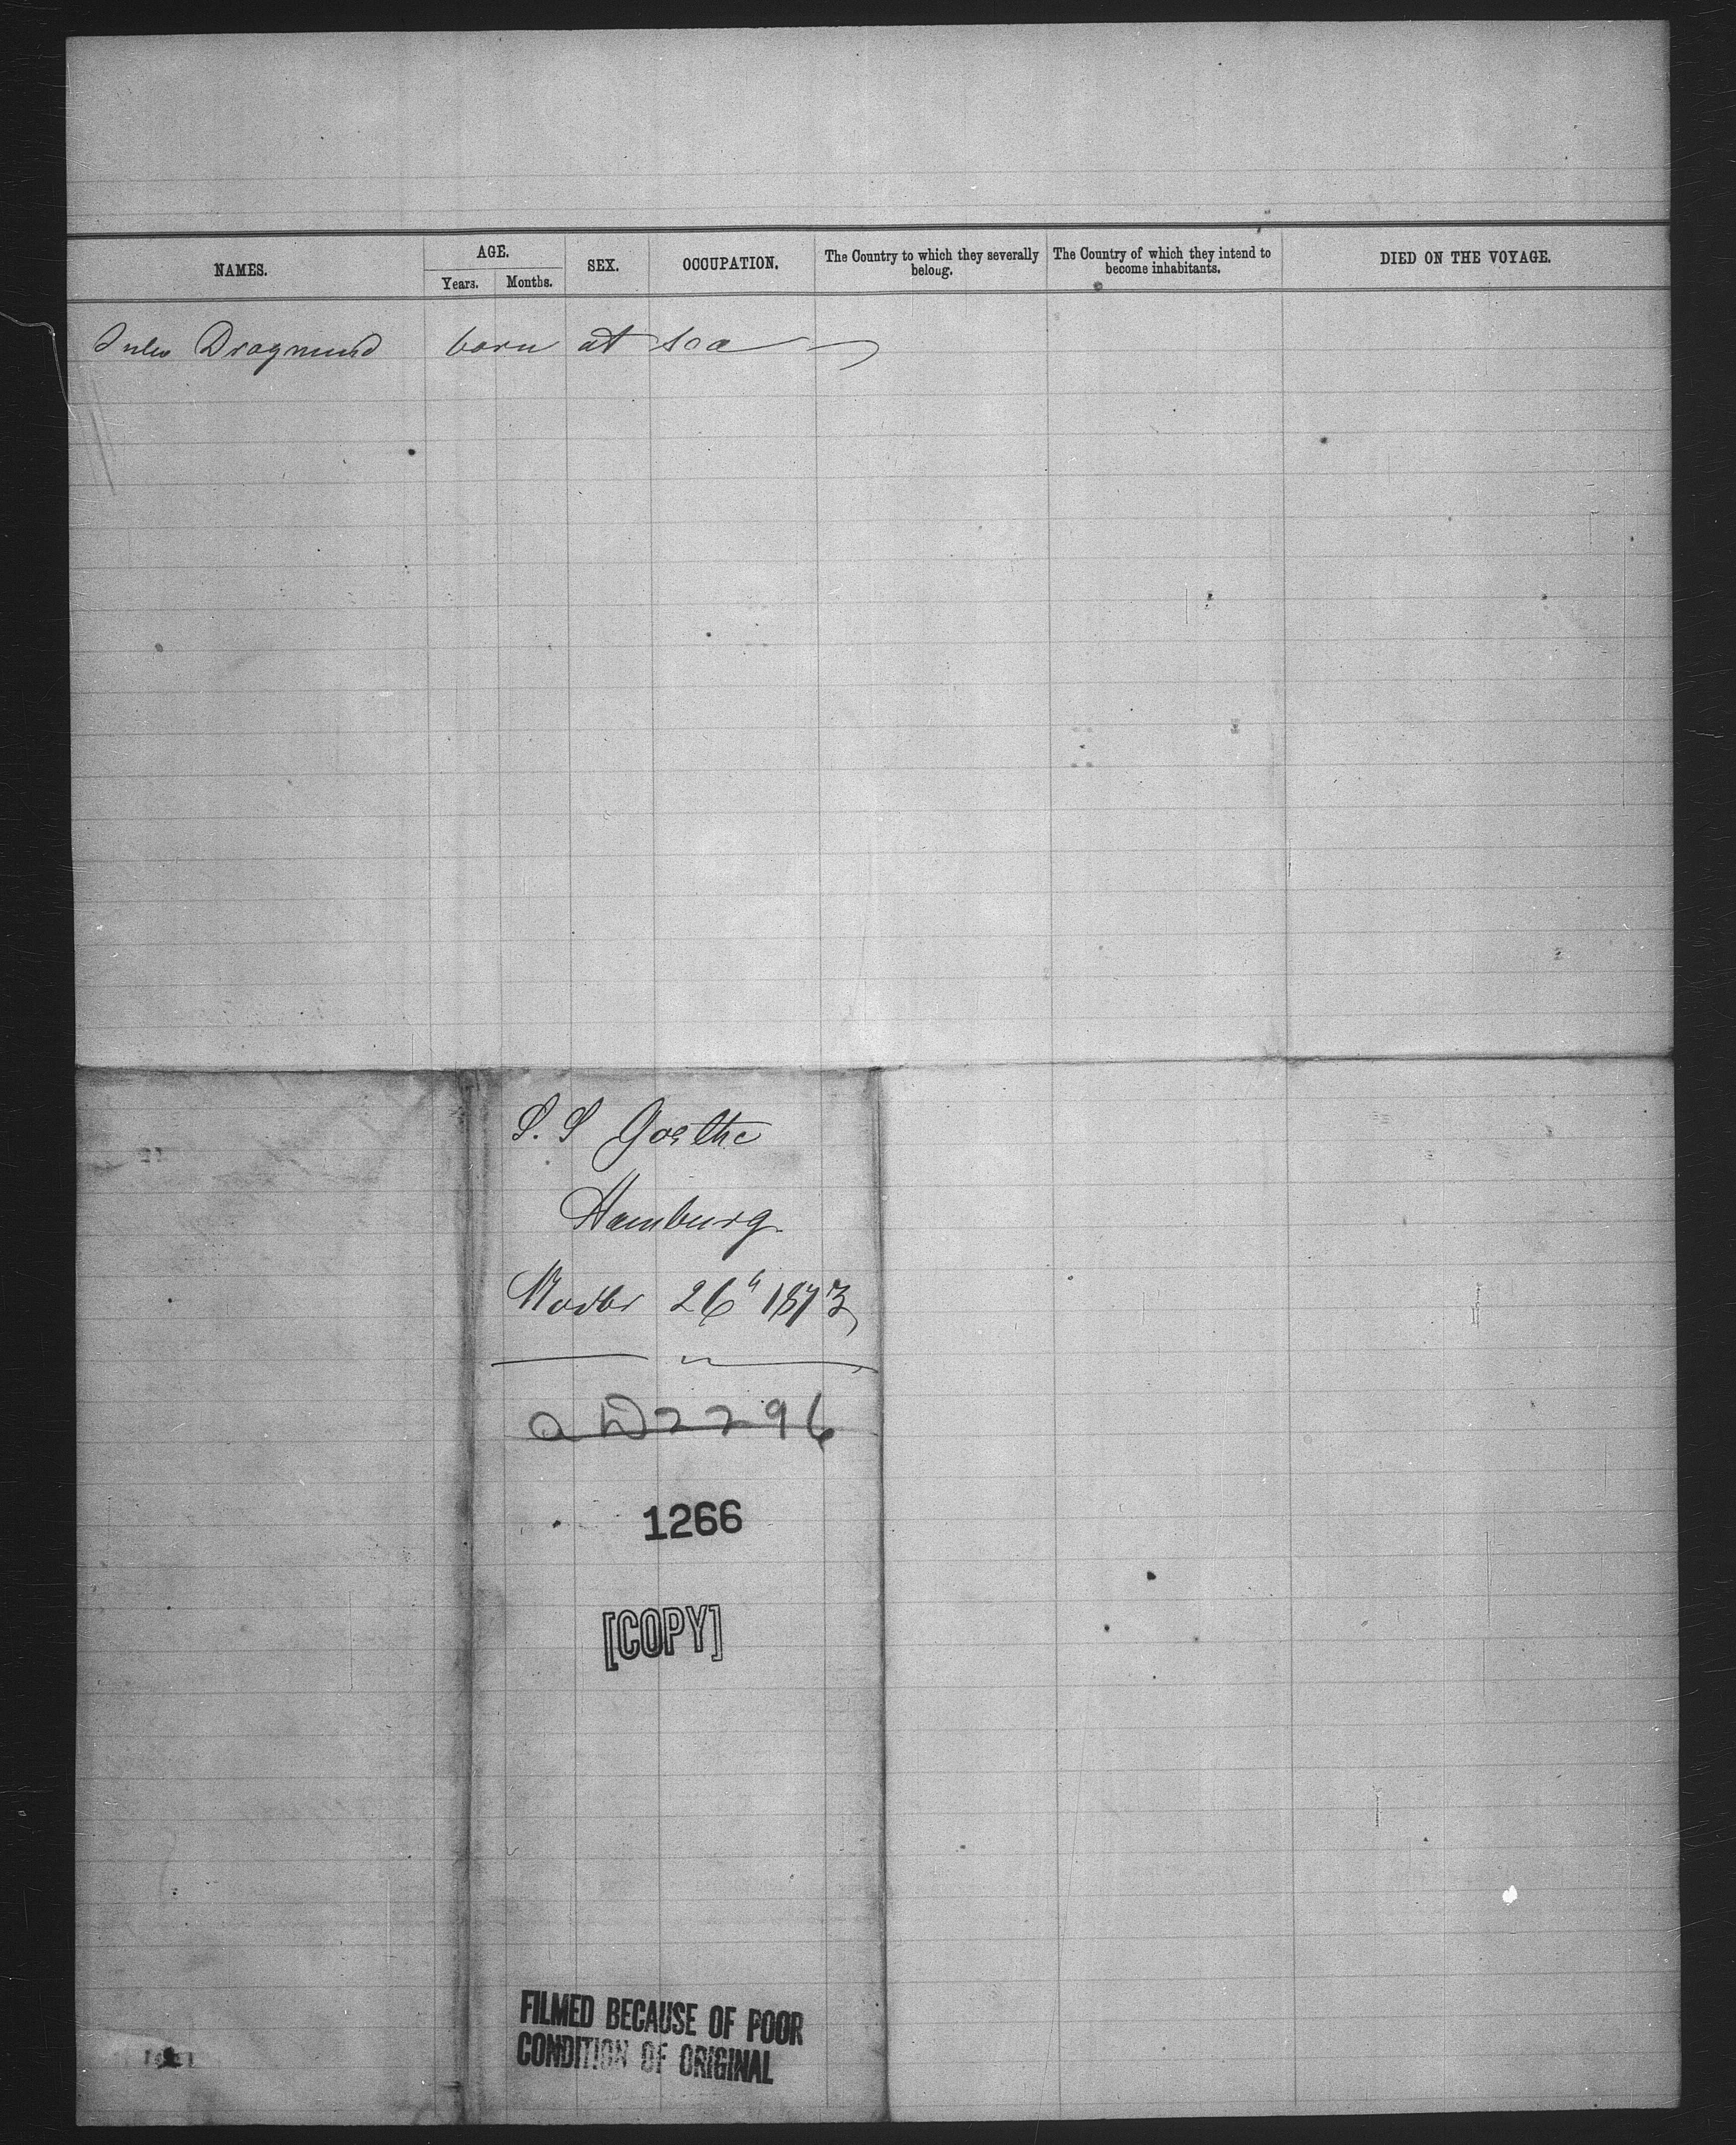 NAMES. AGE. SEX. OCCUPATION. The Country to which they severally belong. The Country of which they intend to become inhabitants. DIED ON THE VOYAGE.
Years. Months.
Dragmund born at sea
S. S Goethe
Hamburg
Novbr 26" 1873
2296
1266
[COPY]
FILMED BECAUSE OF POOR
CONDITION OF ORIGINAL